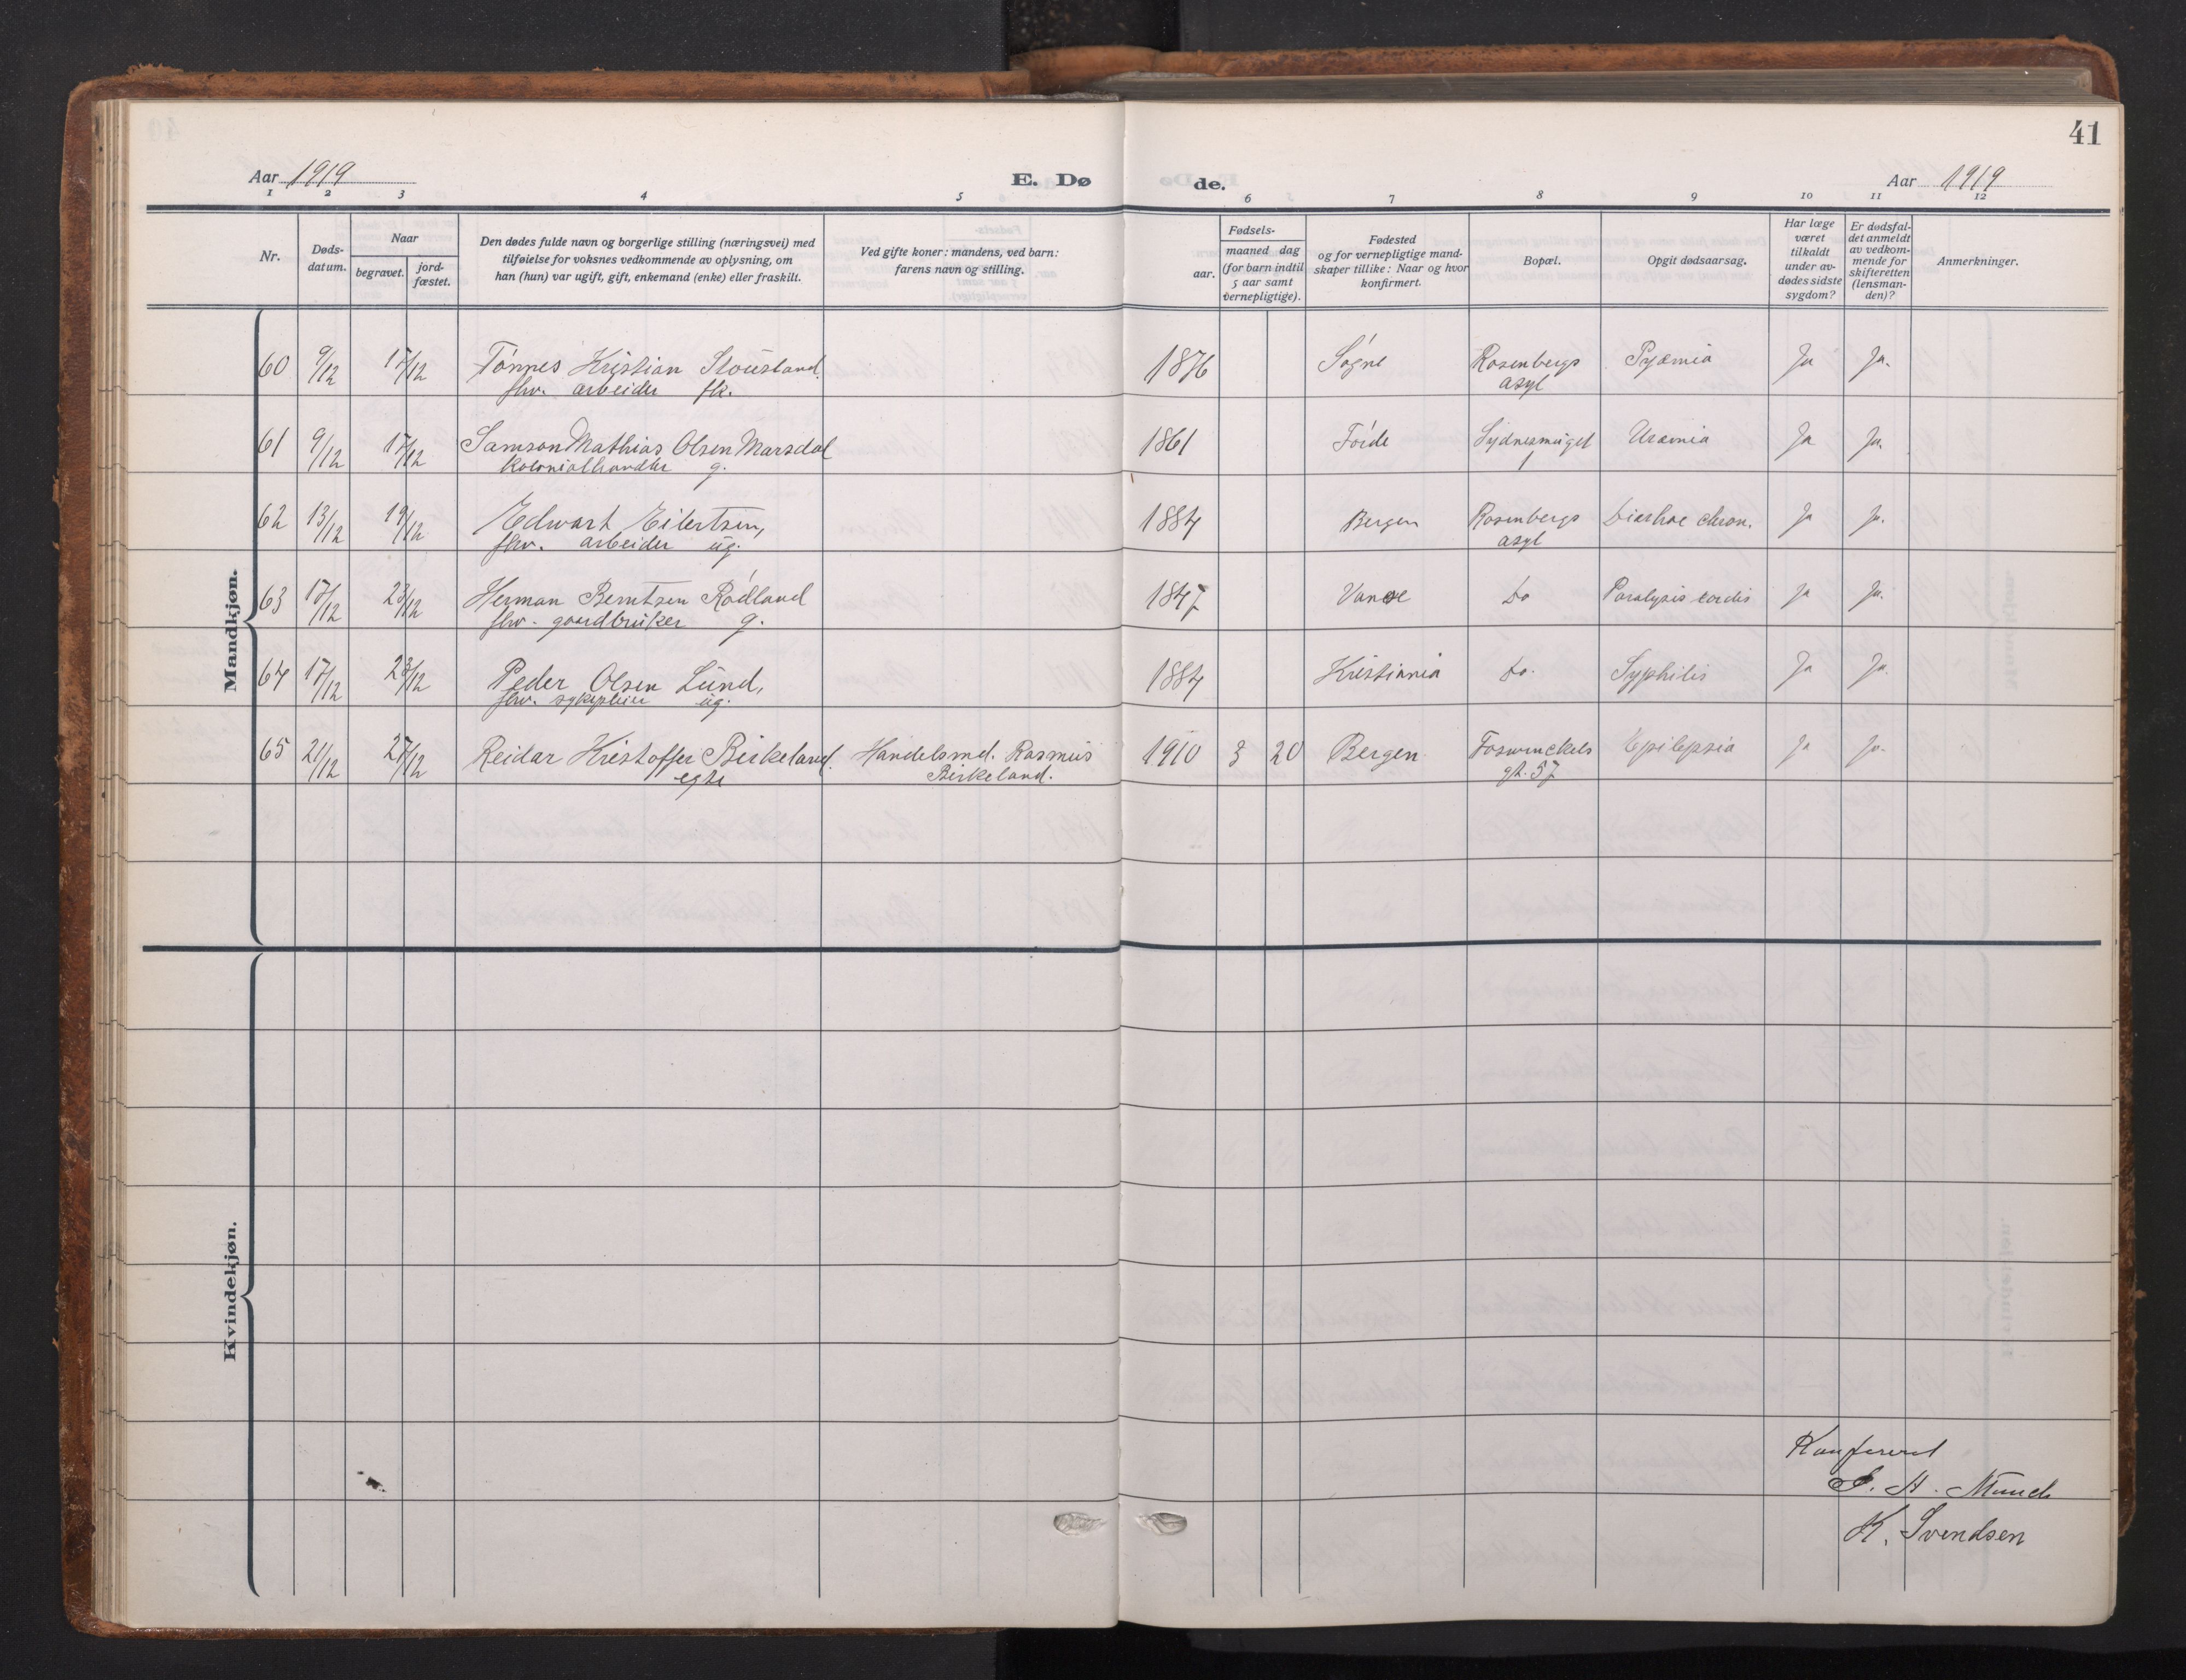 41
Aar 1919
E. Dø
de.
Aar 1919
1 2 3 4 5 6 7 8 9 10 11 12
Nr.
Døds-
datum.
Naar
begravet.
jord-
fæstet.
Den dødes fulde navn og borgerlige stilling (næringsvei) med
tilføielse for voksnes vedkommende av oplysning, om
han (hun) var ugift, gift, enkemand (enke) eller fraskilt.
Ved gifte koner: mandens, ved barn:
farens navn og stilling.
Fødsels-
aar.
maaned dag
(for barn indtil
5 aar samt
vernepligtige).
Fødested
og for vernepligtige mand-
skaper tillike: Naar og hvor
konfirmert.
Bopæl.
Opgit dødsaarsag.
Har læge
været
tilkaldt
under av-
dødes sidste
sygdom?
Er dødsfal-
det anmeldt
av vedkom-
mende for
skifteretten
(lensman-
den)?
Anmerkninger.
Mandkjøn.
60 9/12 17/12 Tönnes Kristian Stousland. 1876 Søgne Rosenbergs Pyæmia Ja Ja.
fhv. arbeider fk. asyl
61 9/12 17/12 Samson Mathias Olsen Marsdal 1861 Förde Sydnesmuget Uræmia Ja Ja.
kolonialhandler g. 1
62 13/12 19/12 Edvart Eilertsen, 1884 Bergen Rosenbergs Diarhoe chron. Ja Ja.
fhv. arbeider ug. asyl
63 17/12 23/12 Herman Berntsen Rödland 1847 Vanse Do Paralysis cordis Ja Ja.
fhv. gaardbruker g.
64 17/12 23/12 Peder Olsen Lund, 1884 Kristiania Do. Syphilis Ja Ja.
fhv. sykepleier ug.
65 21/12 27/12 Reidar Kristoffer Birkeland. Handelsmd. Rasmus 1910 3 20 Bergen Foswinckels Epilepsia Ja Ja.
egte Birkeland. gt. 57
Kvindekjøn.
Konfereret
E. H. Munch
K. Svendsen